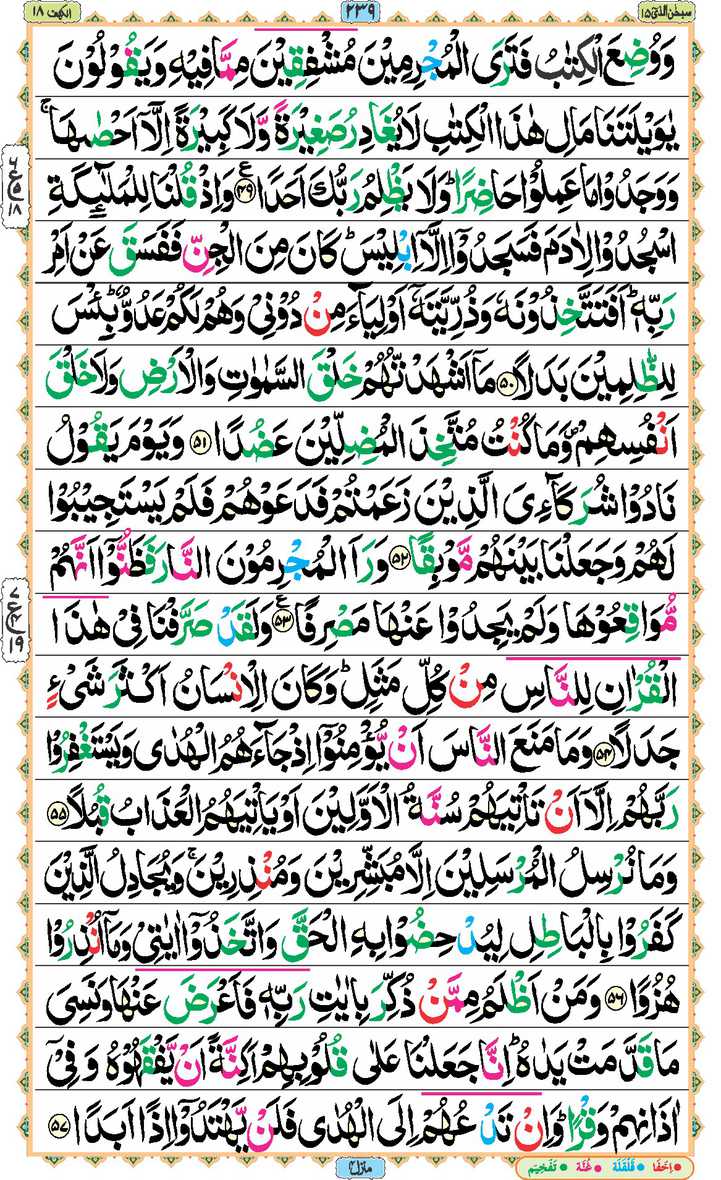 سبحٰن الذی ١٥ ٤٣٩ الکہف ١٨
وَوُضِعَ الْكِتٰبُ فَتَرَى الْمُجْرِمِيْنَ مُشْفِقِيْنَ مِمَّا فِيْهِ وَيَقُوْلُوْنَ
يٰوَيْلَتَنَا مَالِ هٰذَا الْكِتٰبِ لَا يُغَادِرُ صَغِيْرَةً وَّلَا كَبِيْرَةً اِلَّاۤ اَحْصٰىهَا ۚ
وَوَجَدُوْا مَا عَمِلُوْا حَاضِرًا ؕ وَلَا يَظْلِمُ رَبُّكَ اَحَدًا ﴿۴۹﴾ ع وَاِذْ قُلْنَا لِلْمَلٰٓئِكَةِ
اسْجُدُوْا لِاٰدَمَ فَسَجَدُوْۤا اِلَّاۤ اِبْلِيْسَ ؕ كَانَ مِنَ الْجِنِّ فَفَسَقَ عَنْ اَمْرِ
رَبِّهٖ ؕ اَفَتَتَّخِذُوْنَهٗ وَذُرِّيَّتَهٗۤ اَوْلِيَآءَ مِنْ دُوْنِيْ وَهُمْ لَكُمْ عَدُوٌّ ؕ بِئْسَ
لِلظّٰلِمِيْنَ بَدَلًا ﴿۵۰﴾ مَاۤ اَشْهَدْتُّهُمْ خَلْقَ السَّمٰوٰتِ وَالْاَرْضِ وَلَا خَلْقَ
اَنْفُسِهِمْ ۪ وَمَا كُنْتُ مُتَّخِذَ الْمُضِلِّيْنَ عَضُدًا ﴿۵۱﴾ وَيَوْمَ يَقُوْلُ
نَادُوْا شُرَكَآءِيَ الَّذِيْنَ زَعَمْتُمْ فَدَعَوْهُمْ فَلَمْ يَسْتَجِيْبُوْا
لَهُمْ وَجَعَلْنَا بَيْنَهُمْ مَّوْبِقًا ﴿۵۲﴾ وَرَاَ الْمُجْرِمُوْنَ النَّارَ فَظَنُّوْۤا اَنَّهُمْ
مُّوَاقِعُوْهَا وَلَمْ يَجِدُوْا عَنْهَا مَصْرِفًا ﴿۵۳﴾ ع وَلَقَدْ صَرَّفْنَا فِيْ هٰذَا
الْقُرْاٰنِ لِلنَّاسِ مِنْ كُلِّ مَثَلٍ ؕ وَكَانَ الْاِنْسَانُ اَكْثَرَ شَيْءٍ
جَدَلًا ﴿۵۴﴾ وَمَا مَنَعَ النَّاسَ اَنْ يُّؤْمِنُوْۤا اِذْ جَآءَهُمُ الْهُدٰى وَيَسْتَغْفِرُوْا
رَبَّهُمْ اِلَّاۤ اَنْ تَاْتِيَهُمْ سُنَّةُ الْاَوَّلِيْنَ اَوْ يَاْتِيَهُمُ الْعَذَابُ قُبُلًا ﴿۵۵﴾
وَمَا نُرْسِلُ الْمُرْسَلِيْنَ اِلَّا مُبَشِّرِيْنَ وَمُنْذِرِيْنَ ۚ وَيُجَادِلُ الَّذِيْنَ
كَفَرُوْا بِالْبَاطِلِ لِيُدْحِضُوْا بِهِ الْحَقَّ وَاتَّخَذُوْۤا اٰيٰتِيْ وَمَاۤ اُنْذِرُوْا
هُزُوًا ﴿۵۶﴾ وَمَنْ اَظْلَمُ مِمَّنْ ذُكِّرَ بِاٰيٰتِ رَبِّهٖ فَاَعْرَضَ عَنْهَا وَنَسِيَ
مَا قَدَّمَتْ يَدٰهُ ؕ اِنَّا جَعَلْنَا عَلٰى قُلُوْبِهِمْ اَكِنَّةً اَنْ يَّفْقَهُوْهُ وَفِيْۤ
اٰذَانِهِمْ وَقْرًا ؕ وَاِنْ تَدْعُهُمْ اِلَى الْهُدٰى فَلَنْ يَّهْتَدُوْۤا اِذًا اَبَدًا ﴿۵۷﴾
منزل ٤
اِخفَا قَلْقَلَة غُنَّة تَفْخِيْم